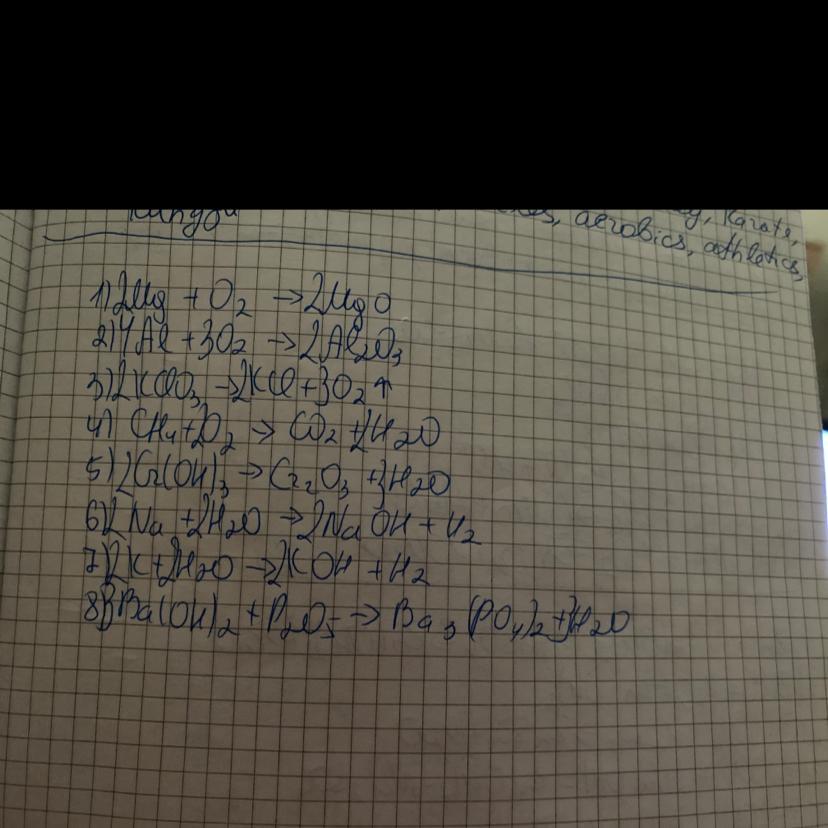 Karate,
aerobics, athletics,
1) 2Mg + O2 → 2MgO
2) 4Al + 3O2 → 2Al2O3
3) 2KClO3 → 2KCl + 3O2 ↑
4) CH4 + 2O2 → CO2 + 2H2O
5) 2Cr(OH)3 → Cr2O3 + 3H2O
6) 2Na + 2H2O → 2NaOH + H2
7) 2K + 2H2O → 2KOH + H2
8) 3Ba(OH)2 + P2O5 → Ba3(PO4)2 + 3H2O